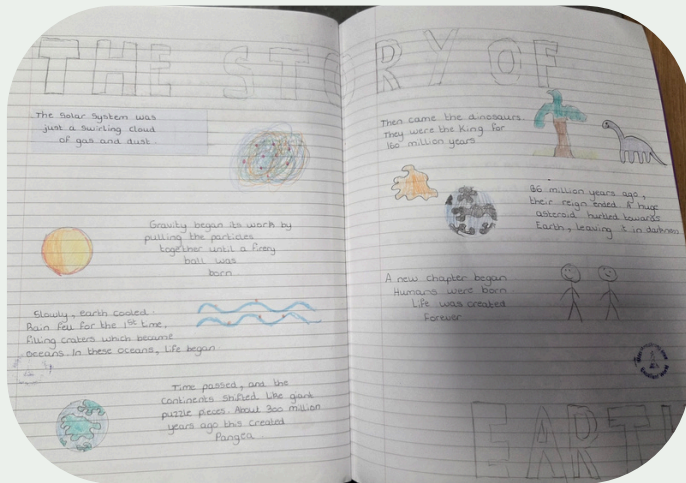 THE STORY OF
The Solar System was
just a swirling cloud
of gas and dust.
Gravity began its work by
pulling the particles
together until a firery
ball was
born
Slowly, earth cooled.
Rain fell for the 1st time,
filling craters which became
oceans. In these oceans, life began
Time passed, and the
continents shifted like giant
puzzle pieces. About 300 million
years ago this created
Pangea
Then came the dinosaurs.
They were the King for
160 million years
86 million years ago,
their reign ended. A huge
asteroid hurtled towards
Earth, leaving it in darkness
A new chapter began
Humans were born
Life was created
Forever
EARTH